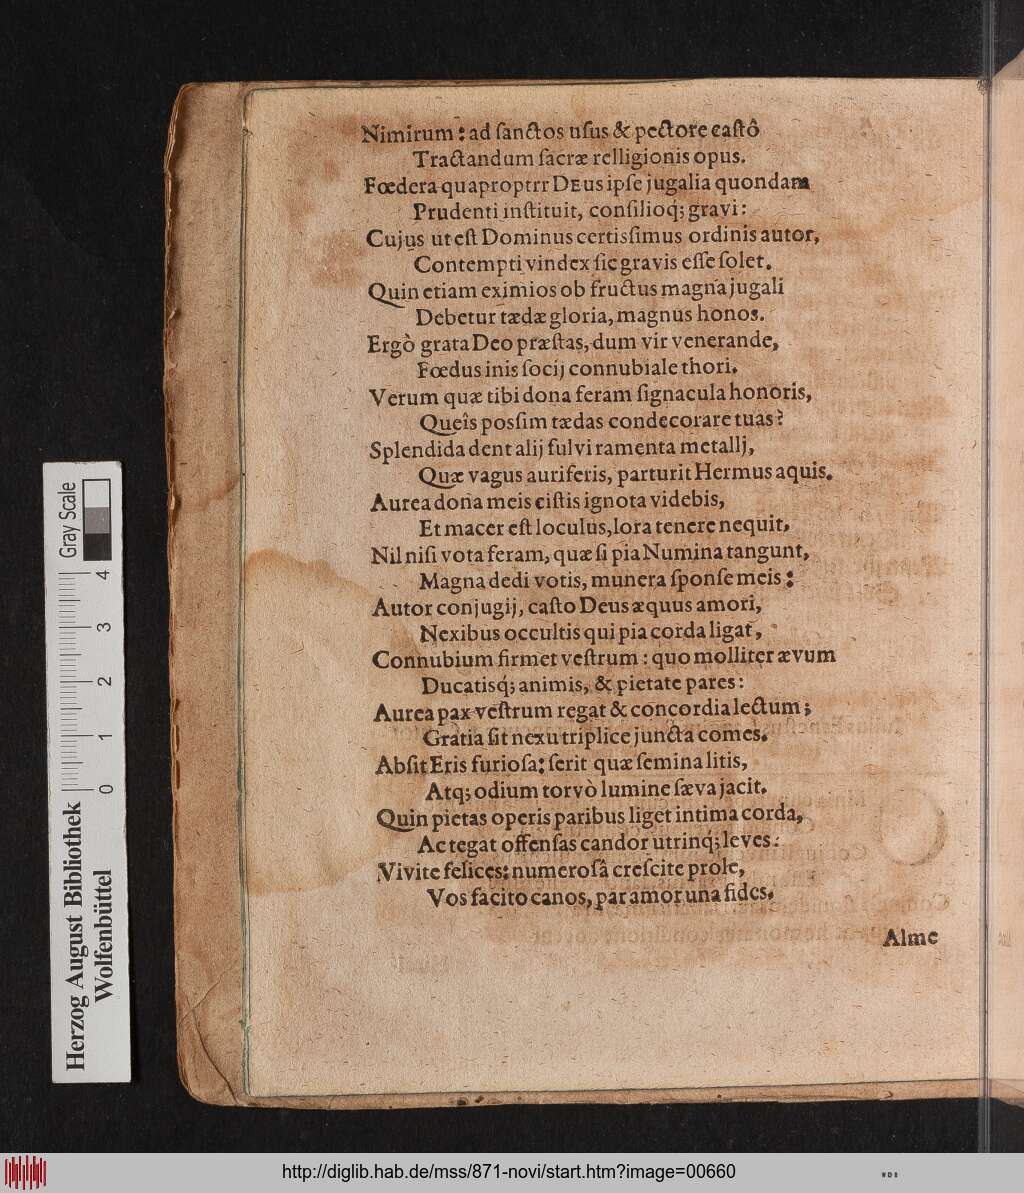 Nimirum: ad ſanctos uſus & pectore caſtô
Tractandum ſacræ relligionis opus.
Fœdera quaproptrr DEus ipſe jugalia quondam
Prudenti inſtituit, conſilioq́; gravi:
Cujus ut eſt Dominus certisſimus ordinis autor,
Contempti vindex ſic gravis eſſe ſolet.
Quin etiam eximios ob fructus magna jugali
Debetur tædæ gloria, magnus honos.
Ergò grata Deo præſtas, dum vir venerande,
Fœdus inis ſocij connubiale thori.
Verum quæ tibi dona feram ſignacula honoris,
Queîs posſim tædas condecorare tuas?
Splendida dent alij fulvi ramenta metallj,
Quæ vagus auriferis, parturit Hermus aquis.
Aurea dona meis ciſtis ignota videbis,
Et macer eſt loculus, lora tenere nequit,
Nil niſi vota feram, quæ ſi pia Numina tangunt,
Magna dedi votis, munera ſponſe meis:
Autor conjugij, caſto Deus æquus amori,
Nexibus occultis qui pia corda ligat,
Connubium firmet veſtrum: quo molliter ævum
Ducatisq́; animis, & pietate pares:
Aurea pax veſtrum regat & concordia lectum;
Gratia ſit nexu triplice juncta comes.
Abſit Eris furioſa: ſerit quæ ſemina litis,
Atq; odium torvò lumine ſæva jacit.
Quin pietas operis paribus liget intima corda,
Ac tegat offenſas candor utrinq́; leves:
Vivite felices: numeroſâ creſcite prole,
Vos facito canos, par amor una fides.
Alme
Gray Scale
4
3
2
1
0
Herzog August Bibliothek
Wolfenbüttel
http://diglib.hab.de/mss/871-novi/start.htm?image=00660